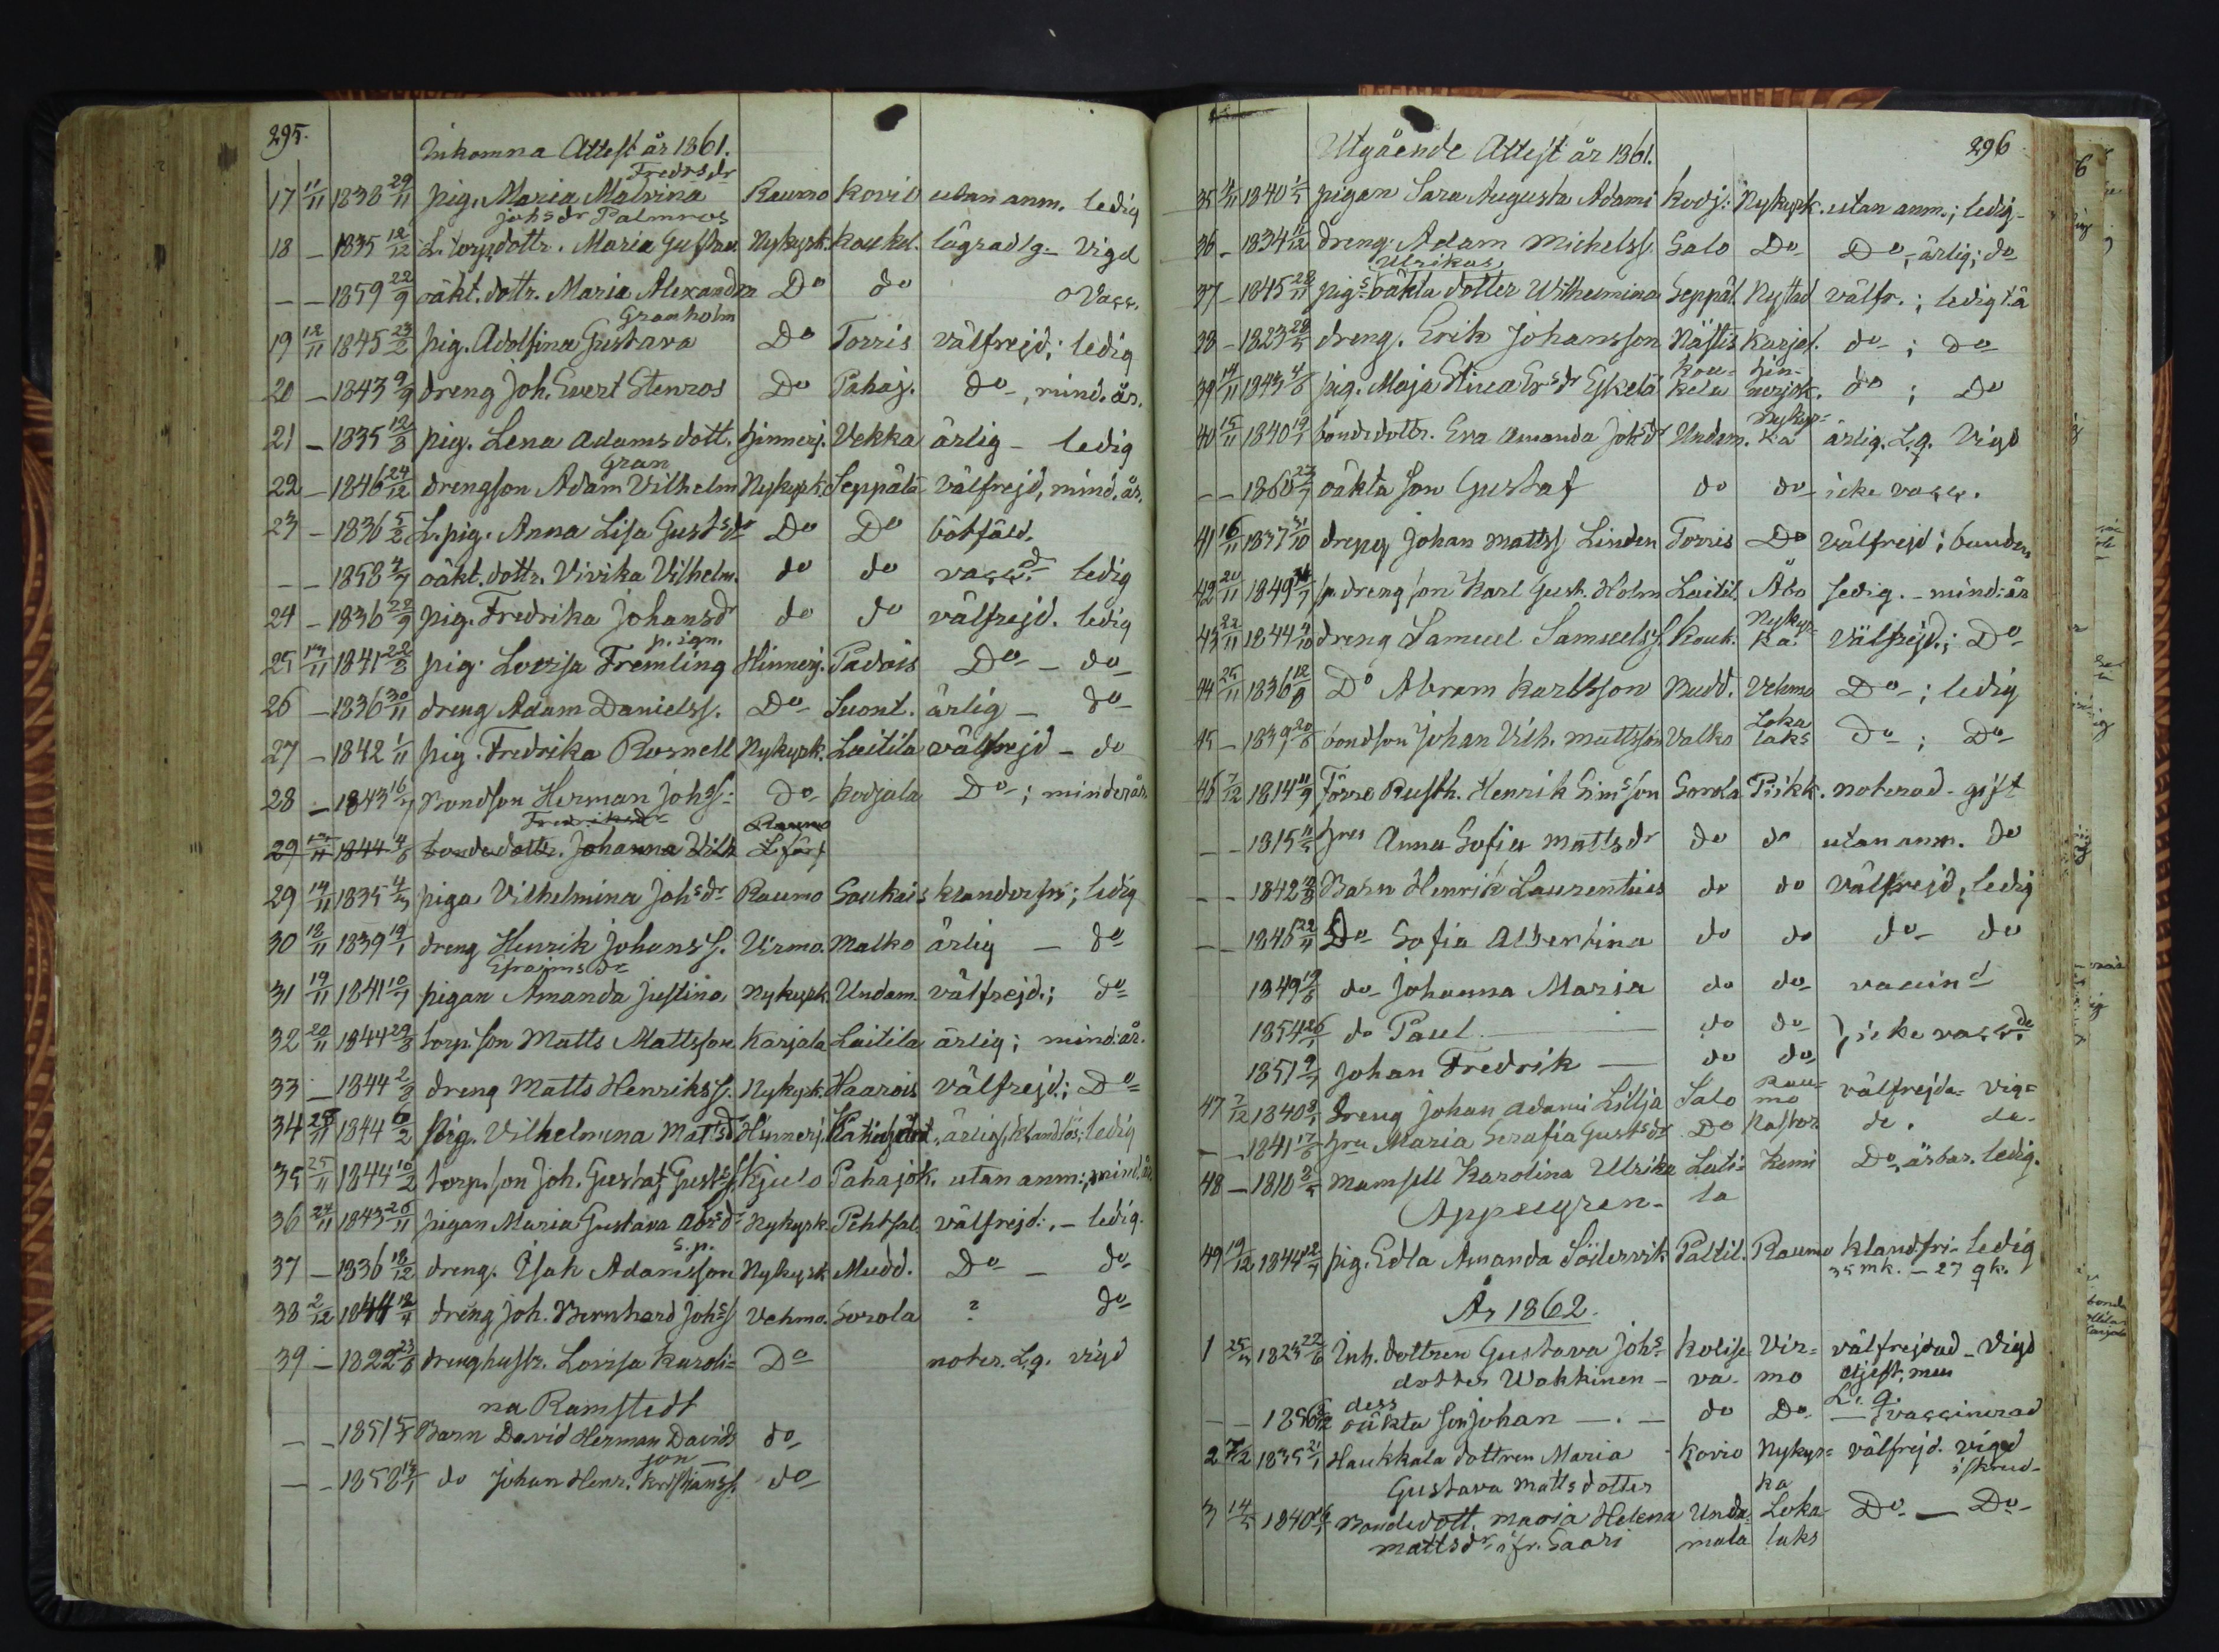 295.
Inkomna Attest år 1861.
Fredrsdr
17 11/11 1838 29/11 pig. Maria Malvina Raumo Kovio utan anm. ledig
johsdr Palmros
18 – 1835 12/12 L. torp.dottr. Maria Gustav. Nykyrk. Koukel. lägrad lg – vigd
– – 1859 22/9 oäkt. dottr. Maria Alexandra Do do o vacc.
Granholm
19 12/11 1845 23/2 pig. Adolfina Gustava Do Torris välfrejd; ledig
20 – 1843 9/9 dreng Joh. Evert Stenros Do Pahaj. do –, mind. år.
21 – 1835 12/8 pig. Lena Adamsdott. Hinnerj. Vekka ärlig – ledig
Gran
22 – 1846 24/12 drengson Adam Vilhelm Nykyrk. Seppälä välfrejd, mind. år.
23 – 1836 5/2 L. pig. Anna Lisa Gustsdr Do Do bötfäld.
– – 1858 4/7 oäkt. dottr. Vivika Vilhelm. do do vacc.d ledig
24 – 1836 22/9 pig. Fredrika Johansdr do do välfrejd. ledig
p. igm.
25 14/11 1841 22/8 pig. Lovisa Fremling Hinnerj. Padois Do – do
26 – 1836 30/11 dreng Adam Danielss. Do Suont. ärlig – do
27 – 1842 1/11 pig. Fredrika Rosnell Nykyrk. Laitila välfrejd – do
28 – 1843 16/7 Bondson Herman Johss: Do Kodjala Do –; minderår.
Fredriksdr Raumo
29 1844 4/6 bondedottr. Johanna Vilh. L. förs
29 14/11 1835 4/5 piga Vilhelmina Johsdr Raumo Soukais klanderfri; ledig
30 18/11 1839 19/1 dreng Henrik Johanss. Virmo. Malko ärlig – do
Efraimsdr
31 19/11 1841 10/7 pigan Amanda Justina Nykyrk. Undam. välfrejd.; do
32 20/11 1844 29/8 torp. son Matts Mattsson Karjala Laitila ärlig; mind: år.
33 – 1844 2/3 dreng Matts Henrikss. Nykyrk. Haarois välfrejd.; Do
34 1844 6/2 pig. Vilhelmina Matsdr Hinnerj. ärlig, klandlös; ledig
35 25/11 1844 10/2 torp. son Joh. Gustaf Gustss. Kjulo Pahajok. utan anm:; mind. år.
36 24/11 1843 26/11 pigan Maria Gustava Abrsdr Nykyrk. Pehtsal. välfrejd:. – ledig.
s. p.
37 – 1836 18/12 dreng. Isak Adamsson Nykyrk Mudd. Do – do
38 2/12 1844 12/4 dreng Joh. Bernhard Johss. Vehmo. Sorola ? do
39 – 1822 23/8 drenghustr. Lovisa Karoli= Do noter. L.g. vigd
na Ramstedt
– – 1851 5/7 Barn David Herman Davids do
son
– – 1858 do Johan Henr. Kristianss. do
296
Utgående Attest år 1861.
35 1840 1/5 pigan Sara Augusta Adami Kodj: Nykyrk. utan anm.; ledig –
36 – 1834 11/12 dreng. Adam Michelss. Salo Do Do –, ärlig; do
Ulrikas
37 – 1845 28/11 pigs oäkta dotter Wilhelmina Seppäl. Nystad välfr.; ledig t.ä
38 – 1823 28/5 dreng. Erik Johansson Nästis Karjal. do –; do
Kou- Hin-
39 14/11 1843 4/8 pig. Maja Stina Ersdr Eskelä kela nerjok. do ; Do
Nykyr=
40 15/11 1840 19/7 bondedottr. Eva Amanda Johsdr Undam. ka ärlig. L.g. vigd
– – 1860 27/7 oäkta son Gustaf do do icke vacc.
41 16/11 1837 31/10 dreng Johan Mattss Linden Torris Do välfrejd; bunden
42 20/11 1849 drengson Karl Gust. Holm Laitil. Åbo ledig. – mind: år
Nykyr=
43 22/11 1844 4/10 dreng Samuel Samuelss. Kouk. ka. välfrejd.; Do
44 25/11 1836 12/9 Do Abram Karlsson Mudd. Vehmo Do –; ledig
Loka
45 – 1839 20/6 bondson Johan Vilh. Mattsson Valko laks Do –; Do
46 7/12 1814 11/9 Förre Rusth. Henrik Simsson Sorola Piikk. noterad – gift
– – 1815 11/5 Hus Anna Sofia Mattsdr do do utan anm. do
– – 1842 Barn Henrik Laurentius do do välfrejd, ledig
– – 1846 22/11 Do Sofia Albertina do do do do
1849 19/6 do Johanna Maria do do vaccind
1854 26/1 do Paul — do do } icke vacc.de
1851 9/7 Johan Fredrik — do do
47 7/12 1840 dreng Johan Adami Lilja Salo Rau- mo välfrejda – vig=
– – 1841 17/6 Hru Maria Serafia Gustsdr Do Kastor do. de.
48 – 1810 2/5 Mamsell Karolina Ulrika Laiti= Kemi Do, ärbar. ledig.
Appelgren – la
49 19/12 1844 22/7 pig. Edla Amanda Södervik Paltil. Raumo klandfri – ledig
35 mk. – 27 qk.
År 1862.
1 25/4 1823 22/6 Inh. dottren Gustava Johs= Kolise Vir= välfrejdad – vigd
dotter Wakkinen – va – mo
dess L. g.
– – 1856 oäkta son Johan — . — do Do – vaccinerad
2 1835 21/1 Haukkala dottren Maria Kovio Nykyr= välfrejd. vigd
Gustava Mattsdotter ka
3 14/5 1840 Bondedott. Maria Helena Unda= Loka Do – Do
Mattsdr ifr. Saari mala laks